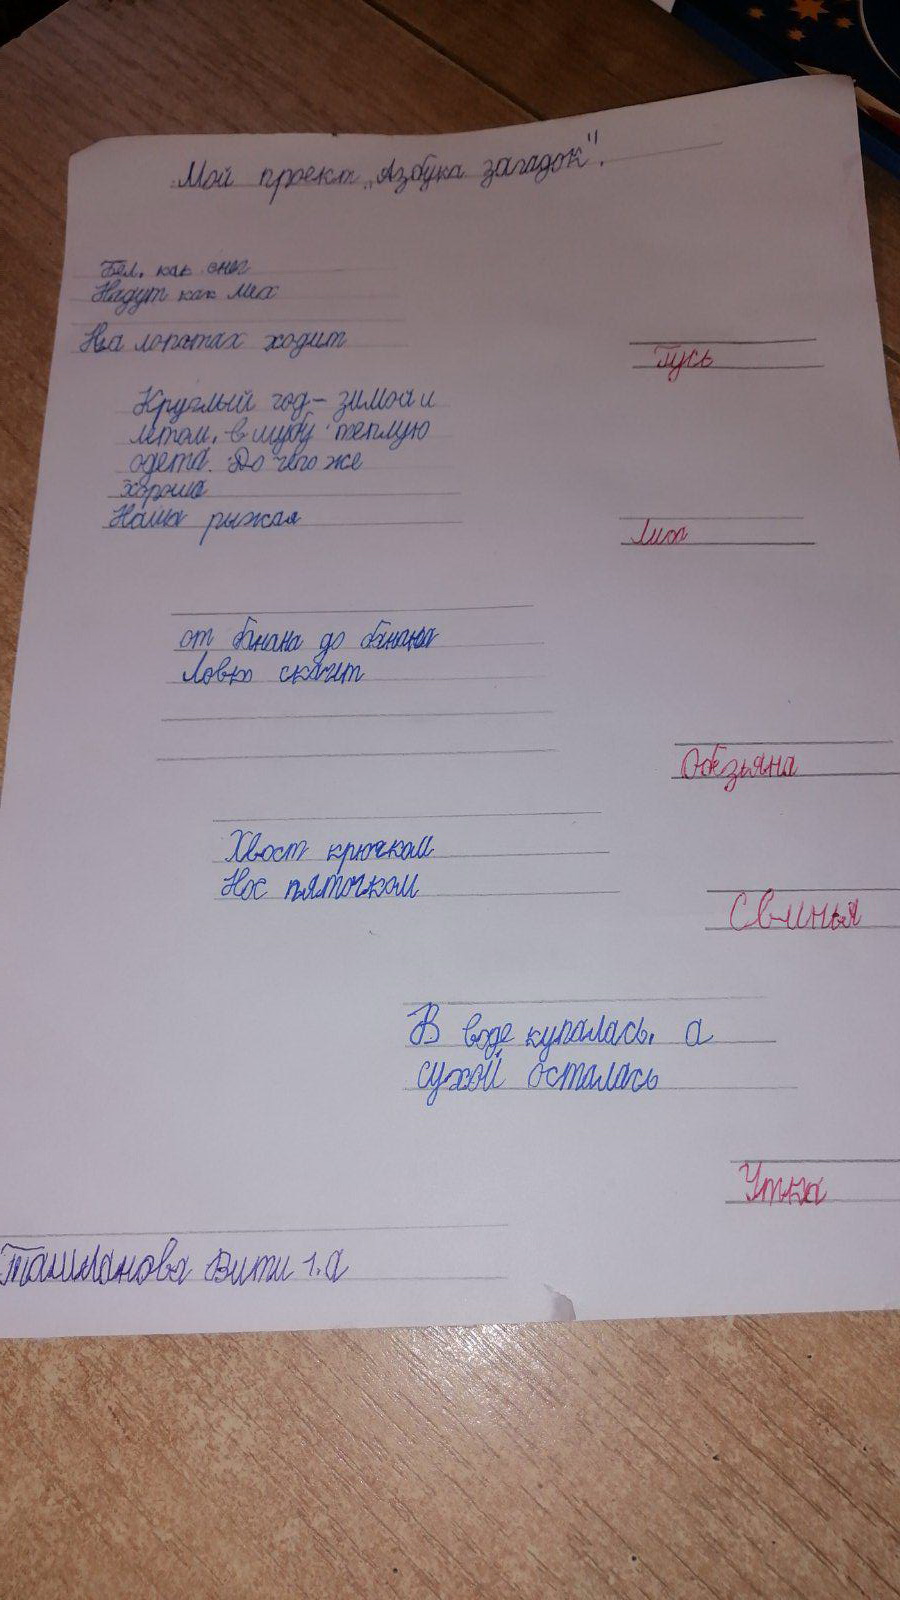 Мой проект „Азбука загадок".
Бел, как снег
Надут как мех
На лопатах ходит
Гусь
Круглый год - зимой и
летом, в шубу теплую
одета. До чего же
хороша
Наша рыжая
Лиса
от банана до банана
Ловко скачет
Обезьяна
Хвост крючком
Нос пяточком
Свинья
В воде купалась, а
сухой осталась
Утка
Вити 1.а